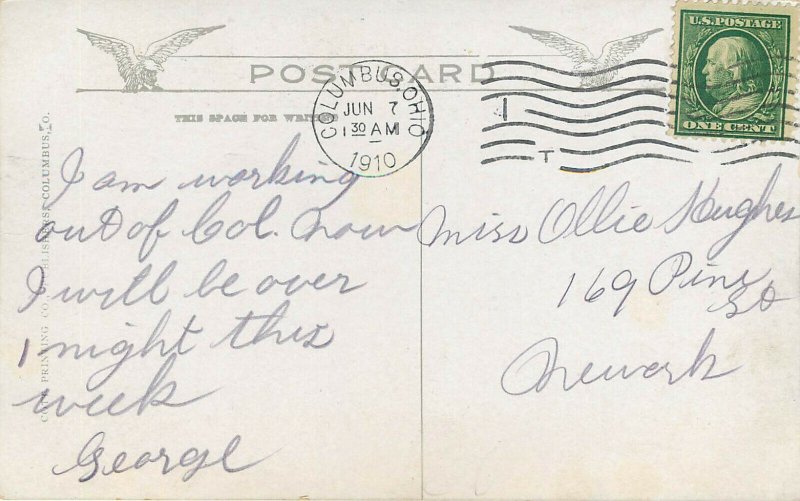 POST CARD
THIS SPACE FOR WRITING
COLUMBUS, OHIO
JUN 7
1 30 AM
1910
U.S. POSTAGE
ONE CENT
I am working
out of Col. now
I will be over
1 night this
week
George
Miss Ollie Hughes
169 Pine
St
Newark
PRINTING CO., PUBLISHERS, COLUMBUS, O.